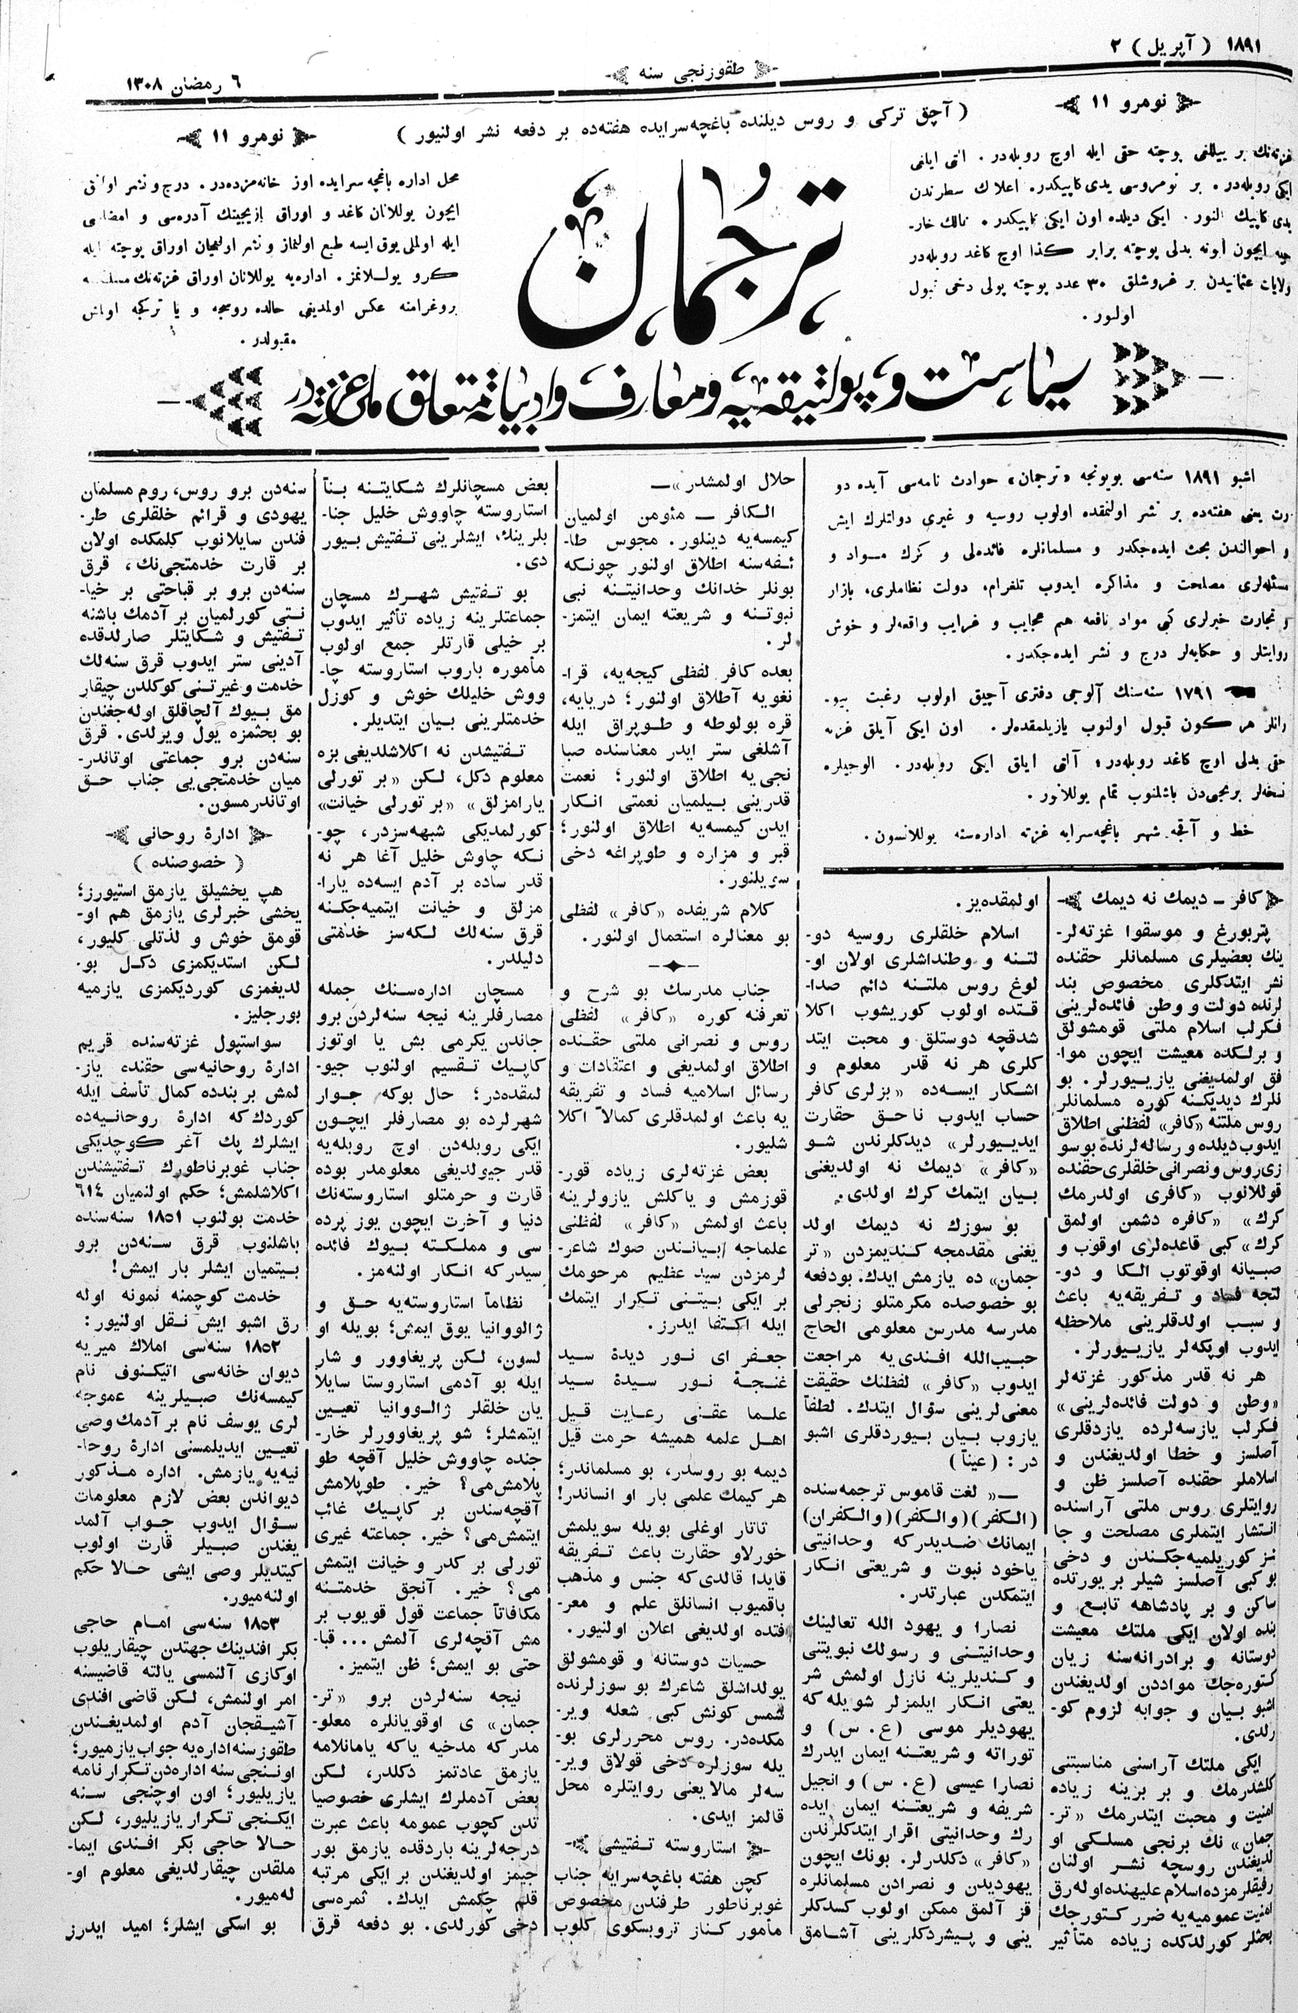 ١٨٩١ ( آپریل ) ٢
طقوزنجی سنه
٦ رمضان ١٣٠٨
نومرو ١١
( آچق ترکی و روس دیلنده باغچه‌سرایده هفته‌ده بر دفعه نشر اولنیور )
نومرو ١١
غزته‌نك بر ییللغی پوچته حقی ایله اوچ روبله‌در. التی ایلغی
ایکی روبله‌در. بر نومروسی یدی کاپیکدر. اعلانك سطرندن
یدی کاپیك النور. ایکی دیلده اون ایکی کاپیکدر. ممالك خار-
جیه ایچون آبونه بدلی پوچته برابر کذا اوچ کاغد روبله‌در
ولایات عثمانیدن بر غروشلق ٣٠ عدد پوچته پولی دخی قبول
اولنور.
ترجمان
محل اداره باغچه سرایده اوز خانه‌مزده‌در. درج و نشر اولنق
ایچون یوللانان کاغد و اوراق یازیجینك آدره‌سی و امضاسی
ایله اولملی یوق ایسه طبع اولنماز و نشر اولنمیان اوراق پوچته ایله
کرو یوللانمز. اداره‌یه یوللانان اوراق غزته‌نك مسلکنه
پروغرامنه عکس اولمدیغی حالده روسجه و یا ترکجه اولماسی
مقبولدر.
سیاست و پولتیقه‌یه و معارف و ادبیاته متعلق ملی غزته‌در
اشبو ١٨٩١ سنه‌سی بویونجه «ترجمان» حوادث نامه‌سی آیده دو
رت یعنی هفته‌ده بر نشر اولنمقده اولوب روسیه و غیری دولتلرك ایش
و احوالندن بحث ایده‌جکدر و مسلمانلره فائده‌لی و کرك مواد و
مسئله‌لری مصلحت و مذاکره ایدوب تلغرام، دولت نظاملری، بازار
و تجارت خبرلری کبی مواد نافعه هم عجایب و غرایب واقعه‌لر و خوش
روایتلر و حکایه‌لر درج و نشر ایده‌جکدر.
١٧٩١ سنه‌سنك آلوجی دفتری آچیق اولوب رغبت بیو-
رانلر هر کون قبول اولنوب یازیلمقده‌لر. اون ایکی آیلق غزته
حق بدلی اوچ کاغد روبله‌در؛ آلتی ایلق ایکی روبله‌در. الوجیلره
نسخه‌لر برنجی‌دن باشلنوب تمام یوللانور.
خط و آقچه شهر باغچه‌سرایه غزته اداره‌سنه یوللانسون.
کافر ــ دیمك نه دیمك
پتربورغ و موسقوا غزته‌لر-
ینك بعضیلری مسلمانلر حقنده
نشر ایتدکلری مخصوص بند
لرنده دولت و وطن فائده‌لرینی
فکرلب اسلام ملتی قومشولق
و برلکده معیشت ایچون موا-
فق اولمدیغنی یازییورلر. بو
نلرك دیدیکنه کوره مسلمانلر
روس ملتنه «کافر» لفظنی اطلاق
ایدوب دیلده و رساله‌لرنده بو سو
زی روس و نصرانی خلقلری حقنده
قوللانوب «کافری اولدرمك
کرك» «کافره دشمن اولمق
کرك» کبی قاعده‌لری اوقوب و
صبیانه اوقوتوب الکا و دو-
لتجه فساد و تفریقه‌یه باعث
و سبب اولدقلرینی ملاحظه
ایدوب اوپکه‌لر یازییورلر.
هر نه قدر مذکور غزته‌لر
«وطن و دولت فائده‌لرینی»
فکرلب یازسه‌لرده یازدقلری
آصلسز و خطا اولدیغندن و
اسلاملر حقنده آصلسز ظن و
روایتلری روس ملتی آراسنده
انتشار ایتملری مصلحت و جا
ئز کوریلمیه‌جکندن و دخی
بو کبی آصلسز شیلر بر یورتده
ساکن و بر پادشاهه تابع و
بنده اولان ایکی ملتك معیشت
دوستانه و برادرانه‌سنه زیان
کتوره‌جك موادن اولدیغندن
اشبو بیان و جوابه لزوم کو-
رلدی.
ایکی ملتك آراسنی مناسبتنی
کلشدرمك و بر برینه زیاده
امنیت و محبت ایتدرمك «تر-
جمان» نك برنجی مسلکی او
لدیغندن روسچه نشر اولنان
رفیقلرمزده اسلام علیهنده اوله‌رق
امنیت عمومیه‌یه ضرر کتورجك
بحثلر کورلدکده زیاده متأثیر
اولمقده‌یز.
اسلام خلقلری روسیه دو-
لتنه و وطنداشلری اولان او-
لوغ روس ملتنه دائم صدا-
قتده اولوب کوریشوب اکلا
شدقچه دوستلق و محبت ایتد
کلری هر نه قدر معلوم و
اشکار ایسه‌ده «بزلری کافر
حساب ایدوب ناحق حقارت
ایدییورلر» دیدکلرندن شو
«کافر» دیمك نه اولدیغنی
بیان ایتمك کرك اولدی.
بو سوزك نه دیمك اولد
یغنی مقدمجه کندیمزدن «تر
جمان» ده یازمش ایدك. بودفعه
بو خصوصده مکرمتلو زنجرلی
مدرسه مدرس معلومی الحاج
حبیب‌الله افندی‌یه مراجعت
ایدوب «کافر» لفظنك حقیقت
معنی‌لرینی سؤال ایتدك. لطفاً
یازوب بیان بیوردقلری اشبو
در: (عیناً)
—« لغت قاموس ترجمه‌سنده
(الکفر)(والکفر)(والکفران)
ایمانك ضدیدرکه وحدانیتی
یاخود نبوت و شریعتی انکار
ایتمکدن عبارتدر.
نصارا و یهود الله تعالینك
وحدانیتنی و رسولك نبویتنی
و کندیلرینه نازل اولمش شر
یعتی انکار ایلمزلر شویله که
یهودیلر موسی (ع. س) و
توراته و شریعتنه ایمان ایدرك
نصارا عیسی (ع. س) و انجیل
شریفه و شریعتنه ایمان ایده
رك وحدانیتی اقرار ایتدکلرندن
«کافر» دکلدرلر. بونك ایچون
یهودیدن و نصرادن مسلمانلره
قز آلمق ممکن اولوب کسدکلر
ینی و پیشردکلرینی آشامق
حلال اولمشدر»—
الکافر ــ مئومن اولمیان
کیمسه‌یه دینلور. مجوس طا-
ئفه‌سنه اطلاق اولنور چونکه
بونلر خدانك وحدانیتنه نبی
نبوتنه و شریعته ایمان ایتمز-
لر.
بعده کافر لفظی کیجه‌یه، قرا-
نغویه آطلاق اولنور؛ دریایه،
قره بولوطه و طوپراق ایله
آشلغی ستر ایدر معناسنده صبا
نجی‌یه اطلاق اولنور؛ نعمت
قدرینی بیلمیان نعمتی انکار
ایدن کیمسه‌یه اطلاق اولنور؛
قبر و مزاره و طوپراغه دخی
سویلنور.
کلام شریفده «کافر» لفظی
بو معنالره استعمال اولنور.
جناب مدرسك بو شرح و
تعرفنه کوره «کافر» لفظی
روس و نصرانی ملتی حقنده
اطلاق اولمدیغی و اعتقادات و
رسائل اسلامیه فساد و تفریقه
یه باعث اولمدقلری کمالاً اکلا
شلیور.
بعض غزته‌لری زیاده قور-
قوزمش و یاکلش یازولرینه
باعث اولمش «کافر» لفظنی
علماجه بیانندن صوك شاعر-
لرمزدن سید عظیم مرحومك
بر ایکی بیتنی تکرار ایتمك
ایله اکتفا ایدرز.
جعفر ای نور دیدهٔ سید
غنجهٔ نور سیدهٔ سید
علما عقنی رعایت قیل
اهل علمه همیشه حرمت قیل
دیمه بو روسدر، بو مسلماندر؛
هر کیمك علمی بار او انساندر!
تاتار اوغلی بویله سویلمش
خورلاو حقارت باعث تفریقه
قایدا قالدی که جنس و مذهب
باقمیوب انسانلق علم و معر-
فتده اولدیغی اعلان اولنیور.
حسیات دوستانه و قومشولق
یولداشلق شاعرك بو سوزلرنده
شمس کونش کبی شعله ویر-
مکده‌در. روس محررلری بو-
یله سوزلره دخی قولاق ویر-
سه‌لر مالایعنی روایتلره محل
قالمز ایدی.
استاروسته تفتیشی
کچن هفته باغچه‌سرایه جناب
غوبرناطور طرفندن مخصوص
مأمور کناز تروبسکوی کلوب
بعض مسچانلرك شکایتنه بنآ
استاروسته چاووش خلیل جنا-
بلرینك، ایشلرینی تفتیش بیور
دی.
بو تفتیش شهرك مسچان
جماعتلرینه زیاده تأثیر ایدوب
بر خیلی قارتلر جمع اولوب
مأموره باروب استاروسته چا-
ووش خلیلك خوش و کوزل
خدمتلرینی بیان ایتدیلر.
تفتیشدن نه اکلاشلدیغی بزه
معلوم دکل، لکن «بر تورلی
یارامزلق» «بر تورلی خیانت»
کورلمدیکی شبهه‌سزدر، چو-
نکه چاوش خلیل آغا هر نه
قدر ساده بر آدم ایسه‌ده یارا-
مزلق و خیانت ایتمیه‌جکنه
قرق سنه‌لك لکه‌سز خذمتی
دلیلدر.
مسچان اداره‌سنك جمله
مصارفلرینه نیجه سنه‌لردن برو
جاندن یکرمی بش یا اوتوز
کاپیك تقسیم اولنوب جیو-
لنقده‌در؛ حال بوکه جوار
شهرلرده بو مصارفلر ایچون
ایکی روبله‌دن اوچ روبله‌یه
قدر جیولدیغی معلومدر بوده
قارت و حرمتلو استاروسته‌نك
دنیا و آخرت ایچون یوز پرده
سی و مملکته بیوك فائده
سیدرکه انکار اولنه‌مز.
نظاماً استاروسته‌یه حق و
ژالووانیا یوق ایمش؛ بویله او
لسون، لکن پریغاوور و شار
ایله بو آدمی استاروستا سایلا
یان خلقلر ژالووانیا تعیین
ایتمشلر؛ شو پریغاوورلر خار-
جنده چاووش خلیل آقچه طو
پلامش‌می؟ خیر. طوپلامش
آقچه‌سندن بر کاپیك غائب
ایتمش‌می؟ خیر. جماعته غیری
تورلی بر کدر و خیانت ایتمش
می؟ خیر. آنجق خدمتنه
مکافاتاً جماعت قول قویوب بر
مش آقچه‌لری آلمش... قبا-
حتی بو ایمش؛ ظن ایتمیز.
نیجه سنه‌لردن برو «تر-
جمان» ی اوقویانلره معلو-
مدرکه مدخیه یاکه یامانلامه
یازمق عادتمز دکلدر، لکن
بعض آدملرك ایشلری خصوصیا
تدن کچوب عمومه باعث عبرت
درجه‌لرینه باردقده یازمق بور
جیمز اولدیغندن بر ایکی مرتبه
قلم چکمش ایدك. ثمره‌سی
دخی کورلدی. بو دفعه قرق
سنه‌دن برو روس، روم مسلمان
یهودی و قرائم خلقلری طر-
فندن سایلانوب کلمکده اولان
بر قارت خدمتجی‌نك، قرق
سنه‌دن برو بر قباحتی بر خیا-
نتی کورلمیان بر آدمك باشنه
تفتیش و شکایتلر صارلدقده
آدینی ستر ایدوب قرق سنه‌لك
خدمت و غیرتنی کوکلدن چیقار
مق بیوك آلچاقلق اوله‌جغندن
بو بحثمزه یول ویرلدی. قرق
سنه‌دن برو جماعتی اوتاندر-
میان خدمتجی‌یی جناب حق
اوتاندرمسون.
ادارهٔ روحانی
( خصوصنده )
هپ یخشیلق یازمق استیورز؛
یخشی خبرلری یازمق هم او-
قومق خوش و لذتلی کلیور،
لکن استدیکمزی دکل بو-
لدیغمزی کوردیکمزی یازمیه
بورجلیز.
سواستپول غزته‌سنده قریم
ادارهٔ روحانیه‌سی حقنده یاز-
لمش بر بندده کمال تأسف ایله
کوردك‌که ادارهٔ روحانیه‌ده
ایشلرك پك آغر کوچدیکی
جناب غوبرناطورك تفتیشندن
اکلاشلمش؛ حکم اولنمیان ٦١٤
خدمت بولنوب ١٨٥١ سنه‌سنده
باشلنوب قرق سنه‌دن برو
بیتمیان ایشلر بار ایمش!
خدمت کوچمنه نمونه اوله
رق اشبو ایش نقل اولنیور:
١٨٥٢ سنه‌سی املاك میریه
دیوان خانه‌سی اتیکنوف نام
کیمسه‌نك صبیلرینه عموجه
لری یوسف نام بر آدمك وصی
تعیین ایدیلمسنی ادارهٔ روحا-
نیه‌یه یازمش. اداره مذکور
دیواندن بعض لازم معلومات
سؤال ایدوب جواب آلمد
یغندن صبیلر قارت اولوب
کیتدیلر وصی ایشی حالا حکم
اولنه‌میور.
١٨٥٣ سنه‌سی امام حاجی
بکر افندینك جهتدن چیقاریلوب
اوکازی آلنمسی یالته قاضیسنه
امر اولنمش، لکن قاضی افندی
آشیقجان آدم اولمدیغندن
طقوز سنه اداره‌یه جواب یازمیور؛
اوننجی سنه اداره‌دن تکرار نامه
یازیلیور؛ اون اوچنجی سنه
ایکنجی تکرار یازیلیور، لکن
حالا حاجی بکر افندی ایما-
ملقدن چیقارلدیغی معلوم او-
له‌میور.
بو اسکی ایشلر؛ امید ایدرز